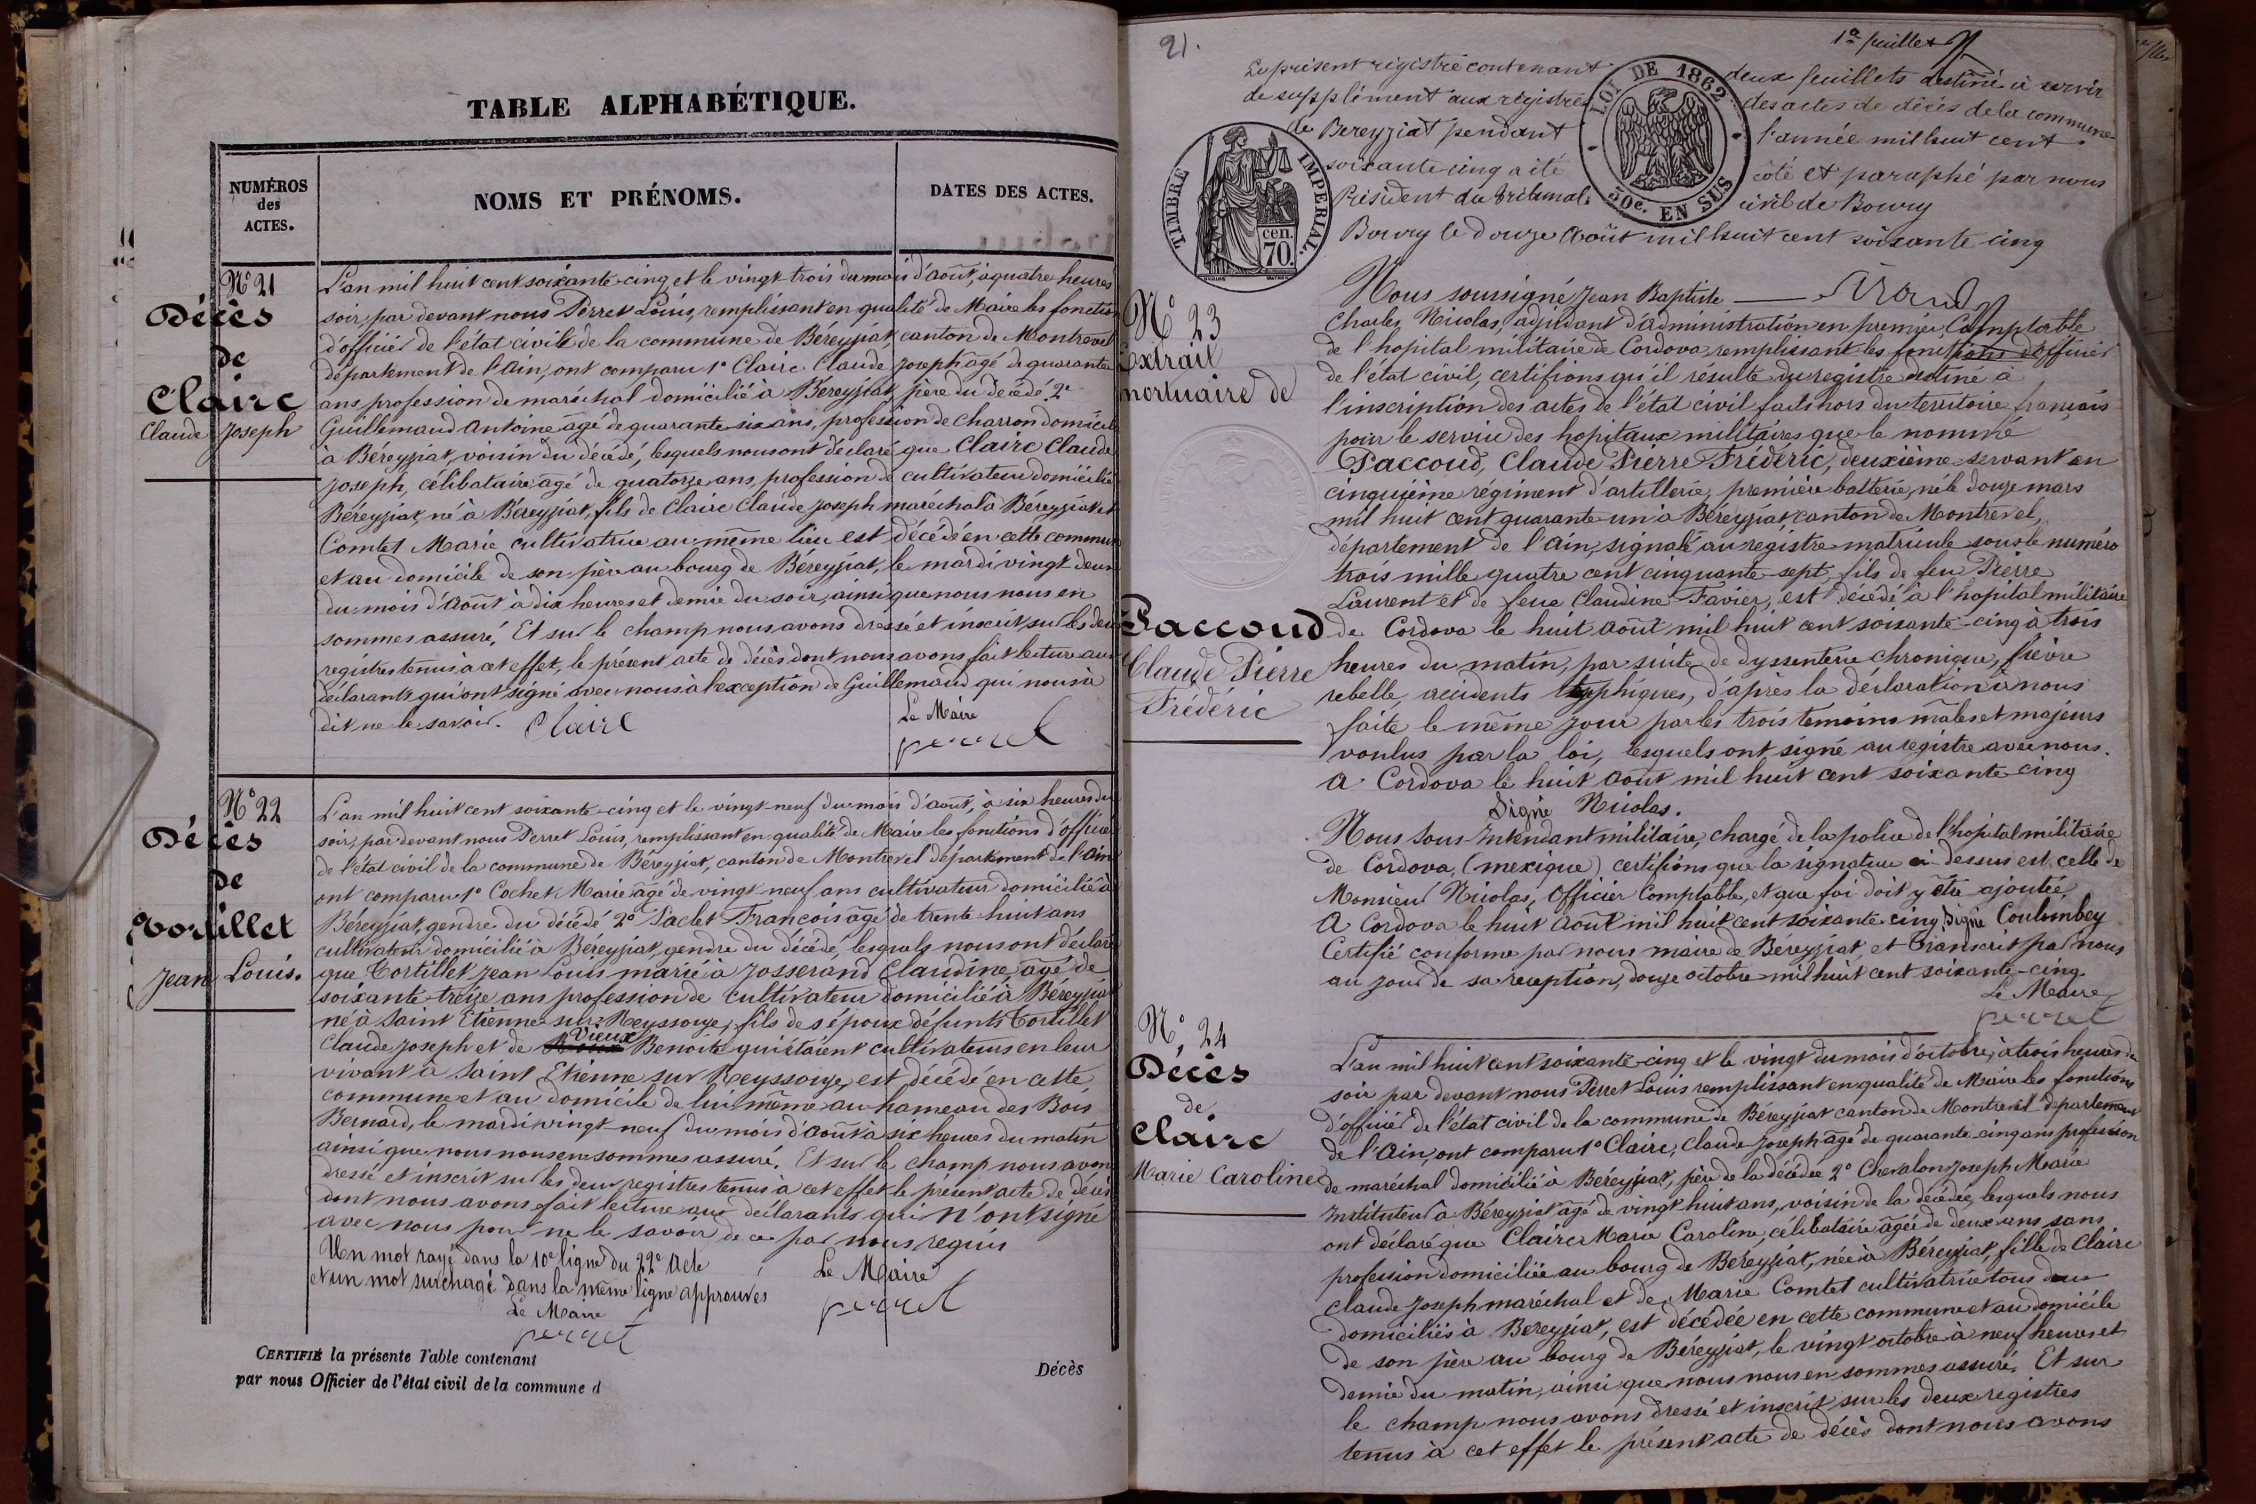 TABLE ALPHABÉTIQUE.
NUMÉROS
des
ACTES.
NOMS ET PRÉNOMS.
DATES DES ACTES.
N° 21
Décès
de
Claire
Claude Joseph
L'an mil huit cent soixante-cinq et le vingt trois du mois d'août, à quatre heures
soir, par devant nous Perret Louis, remplissant en qualité de Maire les fonctions
d'officier de l'état civile de la commune de Béreyziat, canton de Montrevel
département de l'Ain, ont comparu 1° Claire Claude Joseph âgé de quarante
ans profession de maréchal domicilié à Béreyziat, père du décédé 2°
Guillemaud Antoine âgé de quarante six ans, profession de charron domicilié
à Béreyziat, voisin du décédé, lesquels nous ont déclaré que Claire Claude
Joseph, célibataire âgé de quatorze ans, profession de cultivateur domicilié
Béreyziat, né à Béreyziat, fils de Claire Claude Joseph maréchal à Béreyziat et
Comtet Marie cultivatrice au même lieu est décédé en cette commune
et au domicile de son père au bourg de Béreyziat, le mardi vingt deux
du mois d'août à dix heures et demie du soir, ainsi que nous nous en
sommes assuré. Et sur le champ nous avons dressé et inscrit sur les deux
registres tenus à cet effet, le présent acte de décès dont nous avons fait lecture aux
déclarants qui ont signé avec nous à l'exception de Guillemaud qui nous a
dit ne le savoir. Claire
Le Maire
Perret
N° 22
Décès
de
Tortillet
Jean Louis.
L'an mil huit cent soixante-cinq et le vingt neuf du mois d'août, à six heures du
soir, par devant nous Perret Louis, remplissant en qualité de Maire les fonctions d'officier
de l'état civil de la commune de Béreyziat, canton de Montrevel département de l'Ain
ont comparu 1° Cochet Marie âgé de vingt neuf ans cultivateur domicilié à
Béreyziat, gendre du décédé 2° Saclet François âgé de trente huit ans
cultivateur domicilié à Béreyziat, gendre du décédé, lesquels nous ont déclaré
que Tortillet Jean Louis marié à Josserand Claudine, âgé de
soixante-treize ans profession de cultivateur domicilié à Béreyziat
né à Saint Etienne sur Reyssouze, fils des époux défunts Tortillet
Claude Joseph et de Vieux Benoite qui étaient cultivateurs en leur
vivant à Saint Etienne sur Reyssouze, est décédé en cette
commune et au domicile de lui même au hameau des Bois
Bernard, le mardi vingt-neuf du mois d'août à six heures du matin
ainsi que nous nous en sommes assuré. Et sur le champ nous avons
dressé et inscrit sur les deux registres tenus à cet effet le présent acte de décès
dont nous avons fait lecture aux déclarants qui n'ont signé
avec nous pour ne le savoir de ce par nous requis
Un mot rayé dans la 10e ligne du 22e Acte
et un mot surchagé dans la même ligne approuvés
Le Maire
Perret
Le Maire
Perret
CERTIFIÉ la présente Table contenant
Décès
par nous Officier de l'état civil de la commune d
21.
1er feuillet
Le présent registre contenant deux feuillets destiné à servir
de supplément aux registres des actes de décès de la commune
de Bereyziat pendant l'année mil huit cent
soixante cinq a été côté et paraphé par nous
Président du tribunal civil de Bourg
Bourg le douze Août mil huit cent soixante cinq
LOI DE 1862
30c. EN SUS
TIMBRE IMPERIAL
cen.
70.
N° 23
Extrait
mortuaire de
Paccoud
Claude Pierre
Frédéric
Nous soussigné Jean Baptiste
Charles Nicolas, adjudant d'administration en premier, Comptable
de l'hopital militaire de Cordova remplissant les fonctions d'officier
de l'état civil, certifions qu'il résulte du registre destiné à
l'inscription des actes de l'état civil faits hors du territoire français
pour le service des hopitaux militaires que le nommé
Paccoud, Claude Pierre Frédéric, deuxième servant au
cinquième régiment d'artillerie, première batterie, né le douze mars
mil huit cent quarante-un à Béreyziat canton de Montrevel,
département de l'Ain, signalé au registre matricule sous le numéro
trois mille quatre cent cinquante-sept, fils de feu Pierre
Laurent et de feue Claudine Favier, est décédé à l'hopital militaire
de Cordova le huit Août mil huit cent soixante-cinq à trois
heures du matin, par suite de dyssenterie chronique, fièvre
rebelle, accidents typhiques, d'après la déclaration à nous
faite le même jour par les trois témoins mâles et majeurs
voulus par la loi, lesquels ont signé au registre avec nous.
A Cordova le huit août mil huit cent soixante-cinq
Signé Nicolas.
Nous Sous-Intendant militaire, chargé de la police de l'hopital militaire
de Cordova, (mexique) certifions que la signature ci-dessus est celle de
Monsieur Nicolas, Officier Comptable, et que foi doit y être ajoutée
A Cordova le huit Août mil huit cent soixante-cinq. Signé Coulombey
Certifié conforme par nous maire de Béreyziat, et transcrit par nous
au jour de sa reception, douze octobre mil huit cent soixante-cinq.
Le Maire
Perret
N° 24
Décès
de
Claire
Marie Caroline
L'an mil huit cent soixante-cinq et le vingt du mois d'octobre, à trois heures du
soir par devant nous Perret Louis remplissant en qualité de Maire les fonctions
d'officier de l'état civil de la commune de Béreyziat canton de Montrevel département
de l'Ain, ont comparu 1° Claire, Claude Joseph âgé de quarante cinq ans profession
de maréchal domicilié à Béreyziat, père de la décédée 2° Chevalon Joseph Marie
Instituteur à Béreyziat âgé de vingt huit ans, voisin de la décédée, lesquels nous
ont déclaré que Claire Marie Caroline, célibataire âgée de deux ans sans
profession domiciliée au bourg de Béreyziat, née à Béreyziat, fille de Claire
Claude Joseph maréchal et de Marie Comtet cultivatrice tous deux
domiciliés à Bereyziat, est décédée en cette commune et au domicile
de son père au bourg de Béreyziat, le vingt octobre à neuf heures et
demie du matin, ainsi que nous nous en sommes assuré. Et sur
le champ nous avons dressé et inscrit sur les deux registres
tenus à cet effet le présent acte de décès dont nous avons